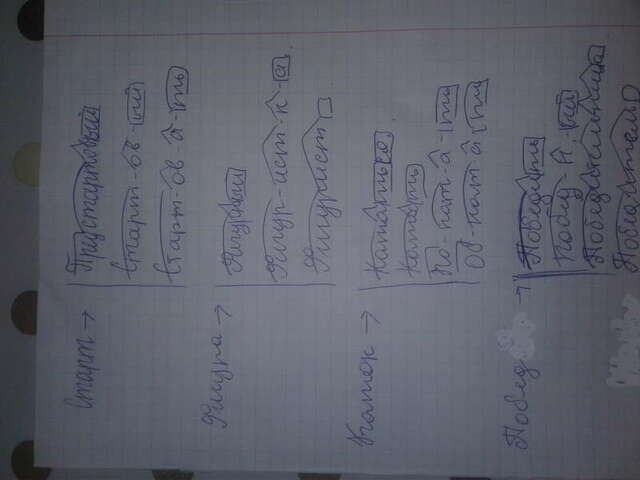 Старт → Пристартовый
Старт-ов-ый
Старт-ов-а-ть
Фигура → Фигурный
Фигур-ист-к-а.
Фигурист
Каток → Кататься.
Катать
По-кат-а-ть
Об-кат-а-ть
Побед → Победить
Побед-н-ый
Победительница
Победитель